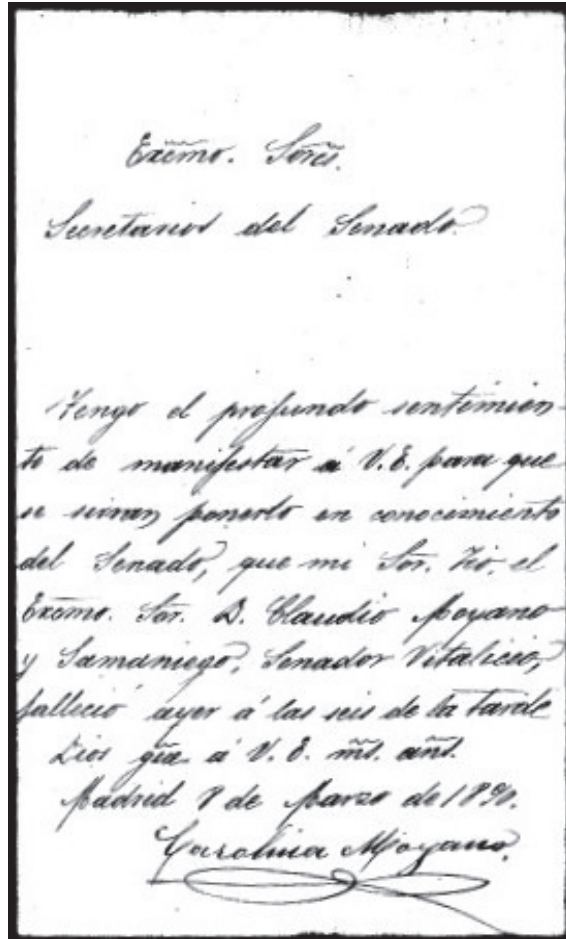 Excmo. Sores.
Secretarios del Senado.
Tengo el profundo sentimien-
to de manifestar á V.E. para que
se sirvan ponerlo en conocimiento
del Senado, que mi Sor. Tio, el
Excmo. Sor. D. Claudio Moyano
y Samaniego, Senador Vitalicio,
falleció ayer á las seis de la tarde
Dios gūe á V.E. ms. añs.
Madrid 8 de Marzo de 1890.
Carolina Moyano.